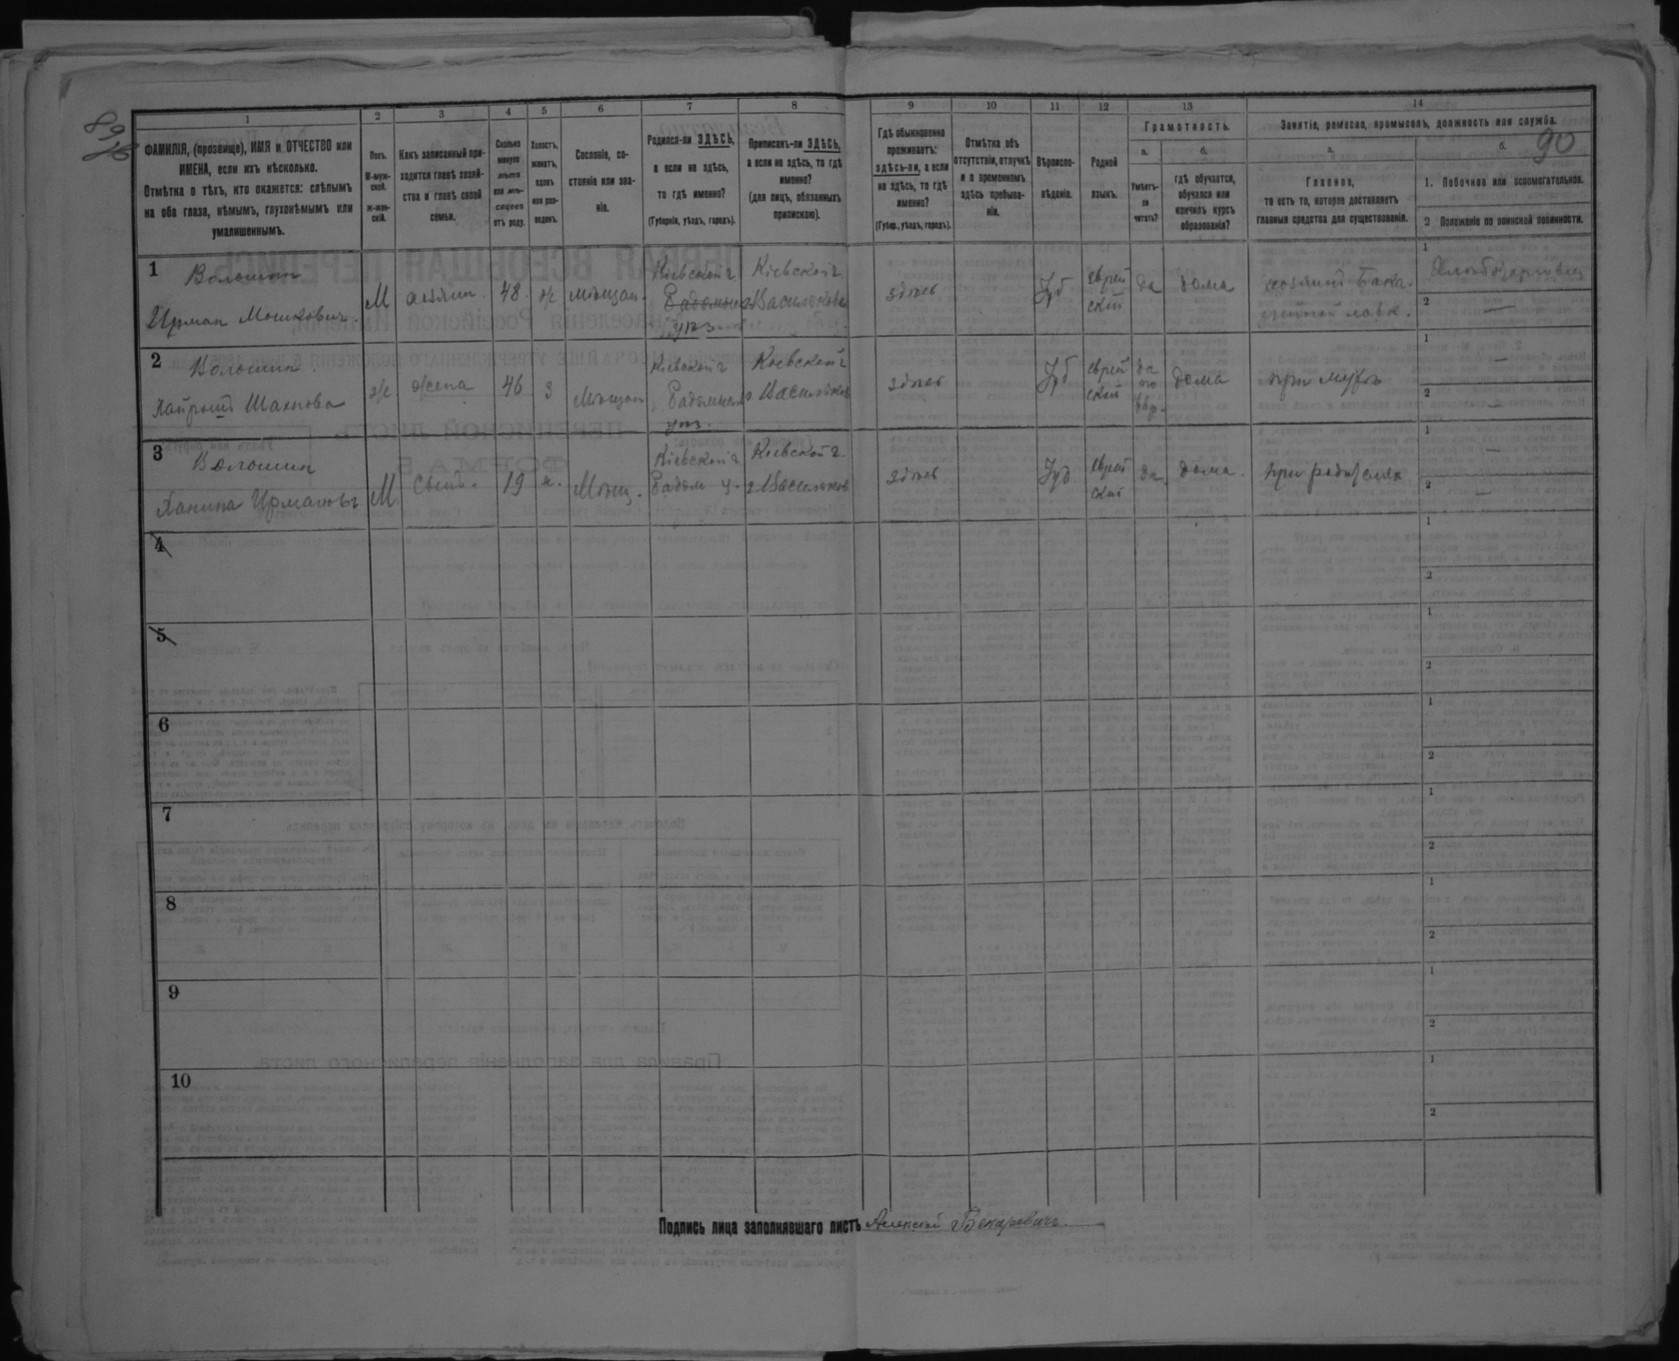 89/76
90
1
2
3
4
5
6
7
8
9
10
11
12
13
14
ФАМИЛІЯ, (прозвище), ИМЯ и ОТЧЕСТВО или
ИМЕНА, если ихъ нѣсколько.
Отмѣтка о тѣхъ, кто окажется: слѣпымъ
на оба глаза, нѣмымъ, глухонѣмымъ или
умалишеннымъ.
Полъ.
М-муж-
ской.
Ж-жен-
скій.
Какъ записанный при-
ходится главѣ хозяй-
ства и главѣ своей
семьи.
Сколько
минуло
лѣтъ
или мѣ-
сяцевъ
отъ роду.
Холостъ,
женатъ,
вдовъ
или раз-
веденъ.
Сословіе, со-
стояніе или зва-
ніе.
Родился-ли ЗДѢСЬ,
а если не здѣсь,
то гдѣ именно?
(Губернія, уѣздъ, городъ).
Приписанъ-ли ЗДѢСЬ,
а если не здѣсь, то гдѣ
именно?
(для лицъ, обязанныхъ
припискою).
Гдѣ обыкновенно
проживаетъ:
здѣсь-ли, а если
не здѣсь, то гдѣ
именно?
(Губер., уѣздъ, городъ).
Отмѣтка объ
отсутствіи, отлучкѣ
и о временномъ
здѣсь пребыва-
ніи.
Вѣроиспо-
вѣданіе.
Родной
языкъ.
Грамотность.
а.
Умѣетъ-
ли
читать?
б.
гдѣ обучается,
обучался или
кончилъ курсъ
образованія?
Занятіе, ремесло, промыселъ, должность или служба.
а.
Главное,
то есть то, которое доставляетъ
главныя средства для существованія.
б.
1. Побочное или вспомогательное.
2 Положеніе по воинской повинности.
1 Волошин
Ирман Мошкович.
М
хозяин.
48
ж
мѣщан.
Кіевской г.
Радомысл
уѣз.
Кіевской г.
г Васильков
здѣсь
Іуд
еврей
скій
да
дома
хозяин Бака-
лейной лавк.
1
2
—
2 Волошин.
Шахнова
ж
жена
46
з
Мѣщан
Кіевской г
Радомысл
уѣз.
Кіевской г
г Васильков
здѣсь
Іуд
еврей
скій
да
по
евр.
дома
при мужѣ
1 —
2 —
3 Волошин
Ханина Ирманов
М
Сынъ.
19
х.
Мѣщ.
Кіевской г
Радом у.
Кіевской г.
г Васильков
здѣсь
Іуд
еврей
скій
да
дома.
при родителях
1 —
2 —
4
1
2
5
1
2
6
1
2
7
1
2
8
1
2
9
1
2
10
1
2
Подпись лица заполнявшаго листъ